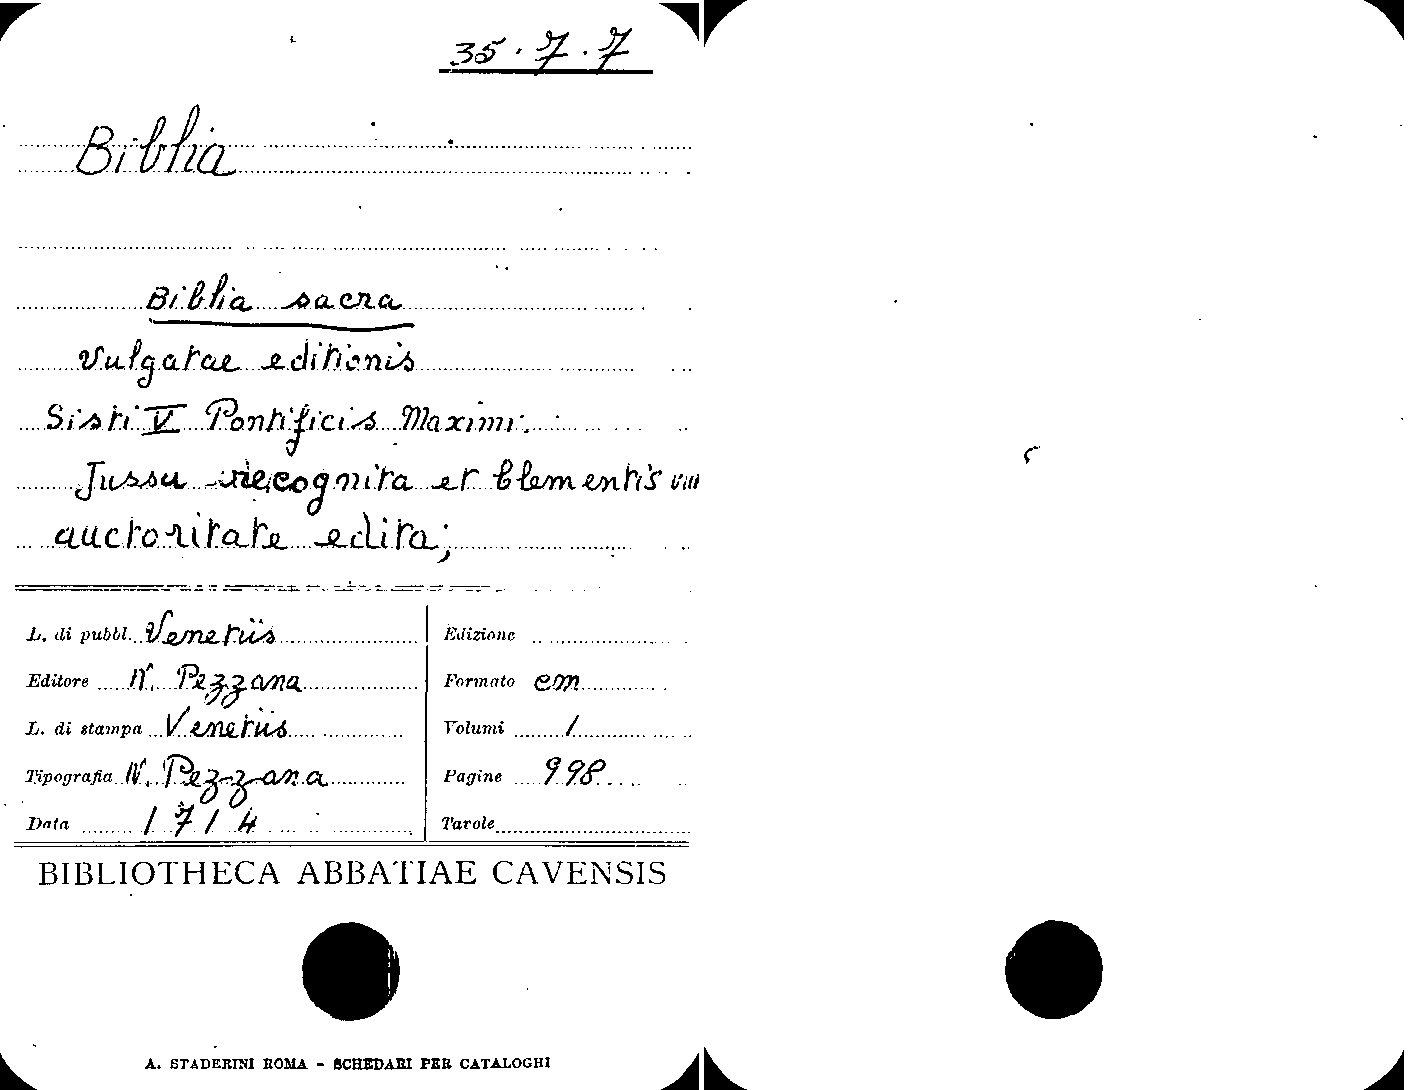 35.7.7
Biblia
Biblia sacra
Vulgatae editionis
Sisti V Pontificis Maximi.
Jussu recognita et Clementis VIII
auctoritate edita;
L. di pubbl. Venetiis
Edizione
Editore N. Pezzana
Formato em
L. di stampa Venetiis
Volumi 1
Tipografia N. Pezzana
Pagine 998
Data 1714
Tavole
BIBLIOTHECA ABBATIAE CAVENSIS
A. STADERINI ROMA - SCHEDARI PER CATALOGHI